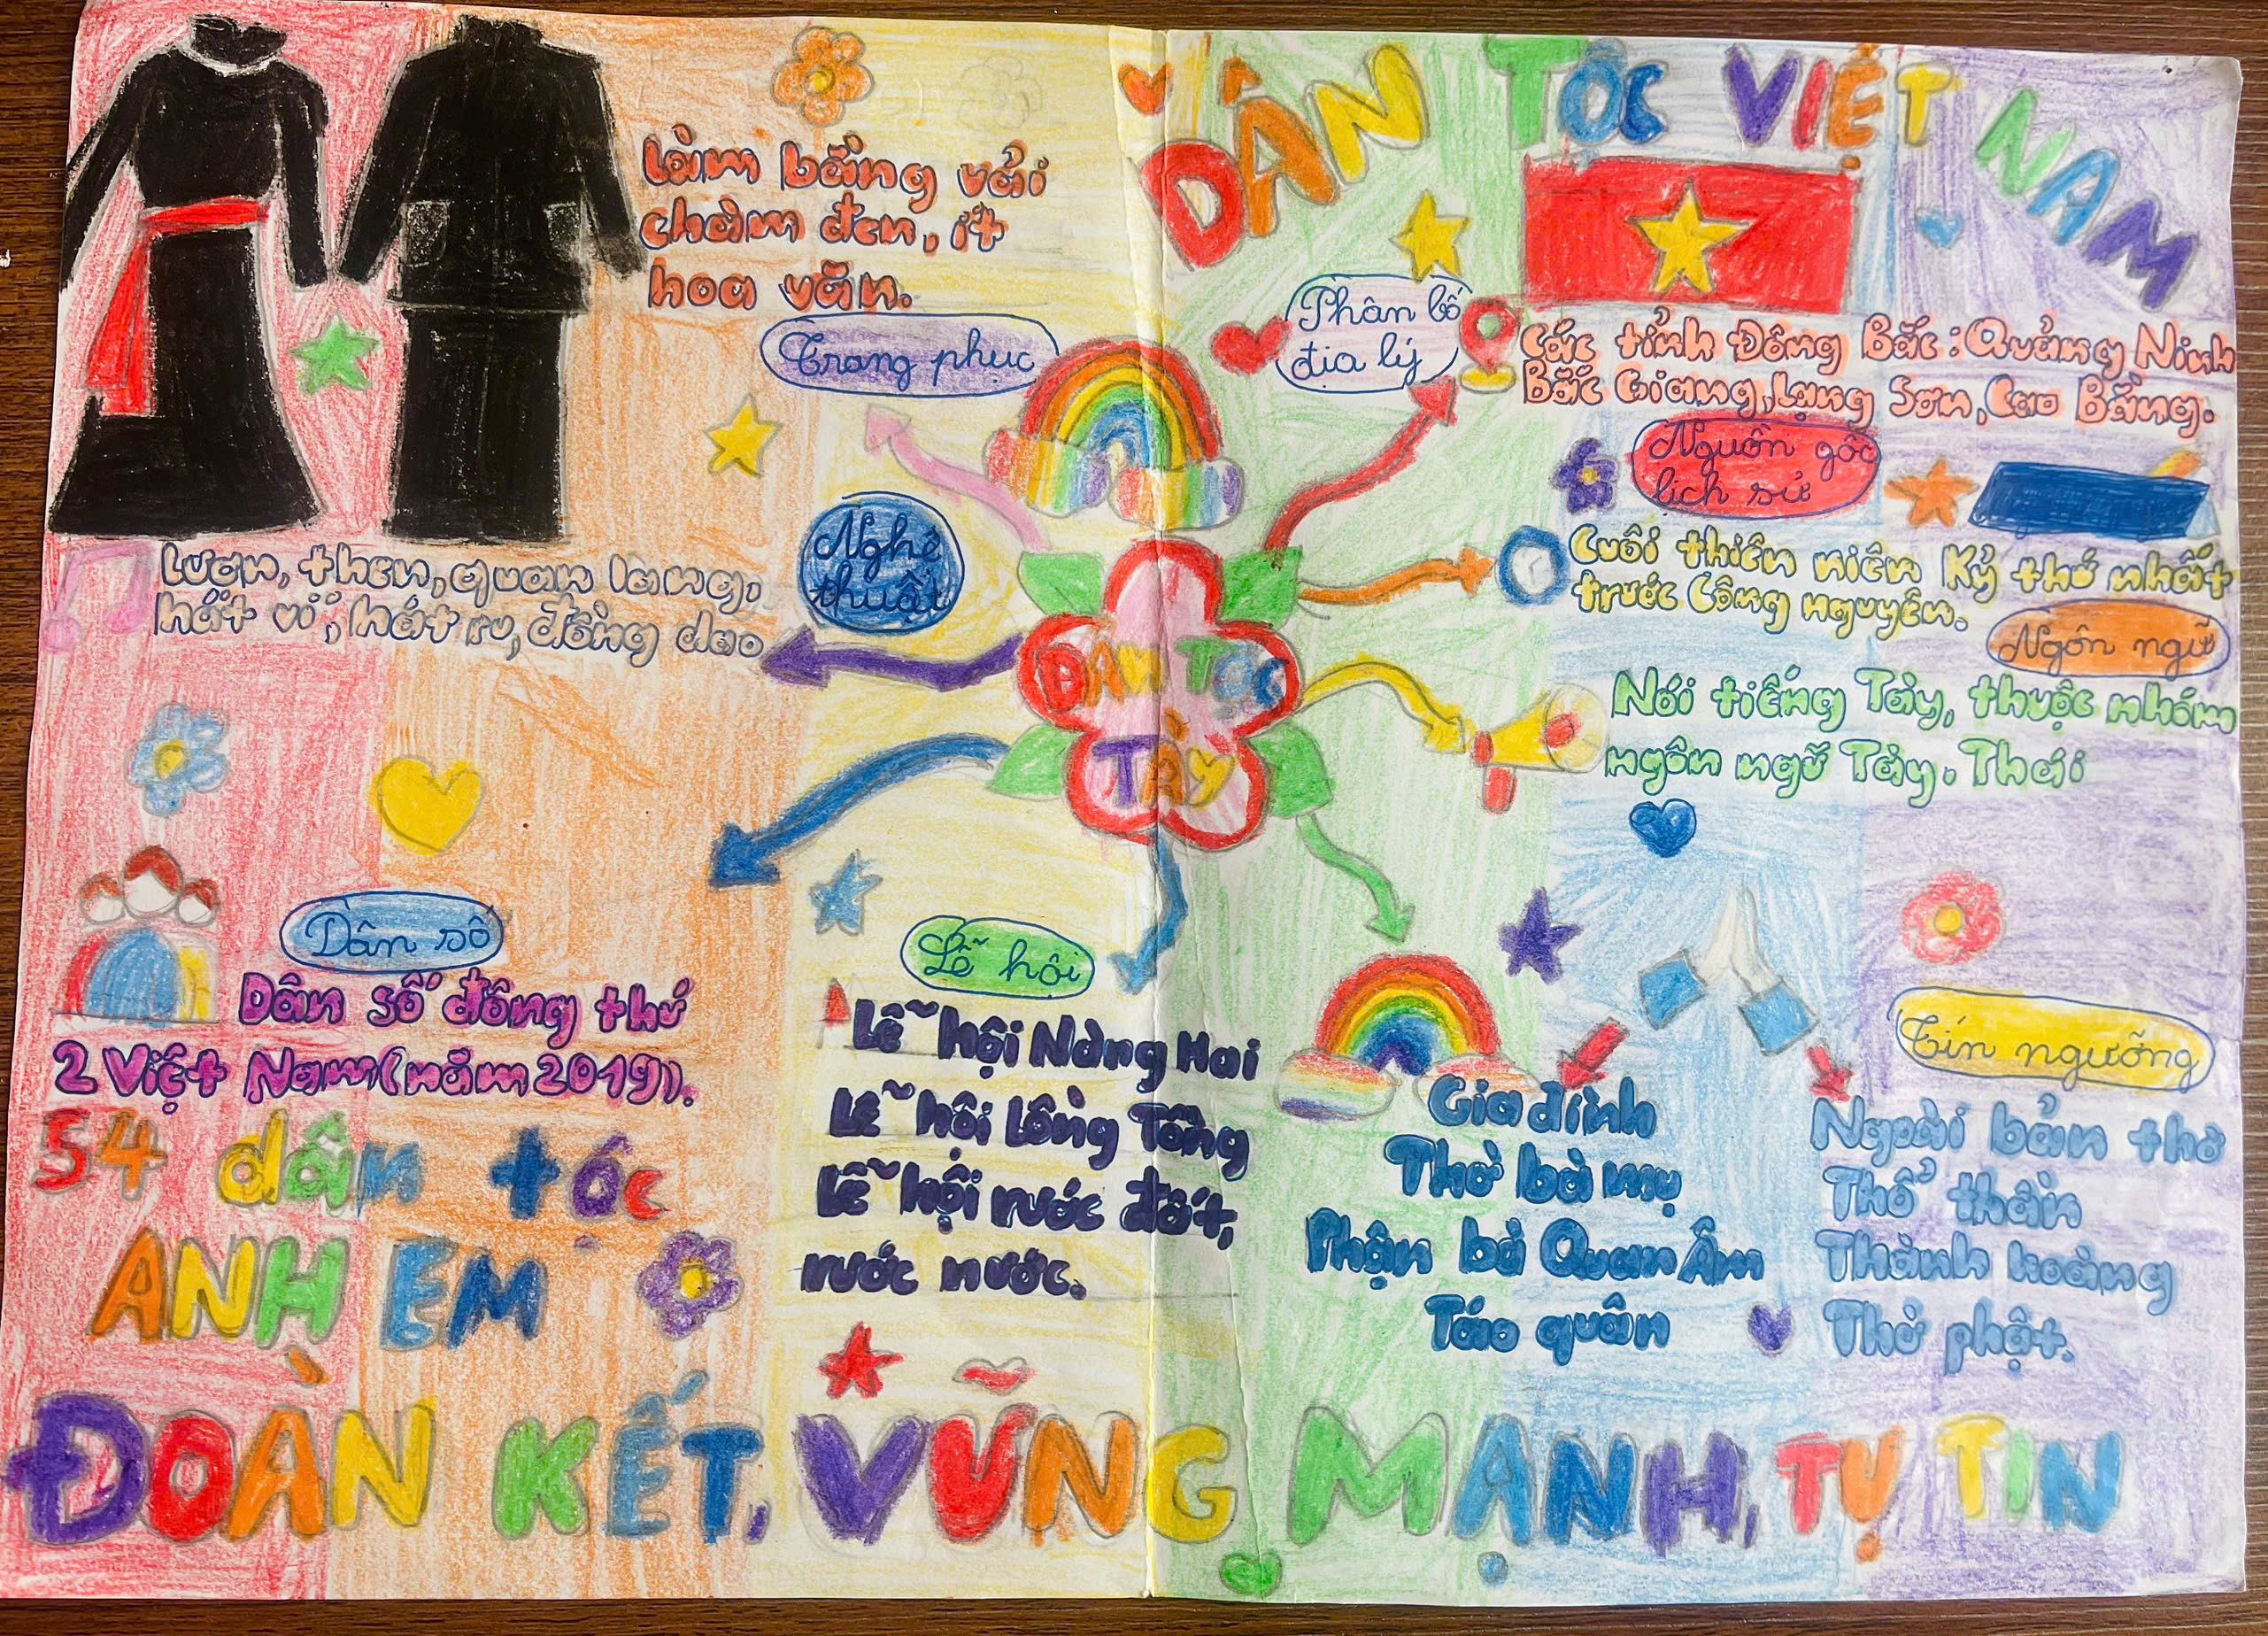 DÂN TỘC VIỆT NAM
Làm bằng vải
chàm đen, ít
hoa văn.
Trang phục
Phân bố
địa lý
Các tỉnh Đông Bắc: Quảng Ninh
Bắc Giang, Lạng Sơn, Cao Bằng.
Nguồn gốc
lịch sử
Cuối thiên niên Kỷ thứ nhất
trước Công nguyên.
Nghệ
thuật
Lượn, then, quan lang,
hát ví, hát ru, đồng dao
Ngôn ngữ
Nói tiếng Tày, thuộc nhóm
ngôn ngữ Tày. Thái
DÂN TỘC
TÀY
Dân số
Dân số đông thứ
2 Việt Nam (năm 2019).
Lễ hội
Lễ hội Nàng Hai
Lễ hội Lồng Tồng
Lễ hội rước đất,
rước nước.
Tín ngưỡng
Gia đình
Thờ bà mụ
Phận bà Quan Âm
Táo quân
Ngoài bản thờ
Thổ thần
Thành hoàng
Thờ phật.
54 dân tộc
ANH EM
ĐOÀN KẾT, VỮNG MẠNH, TỰ TIN